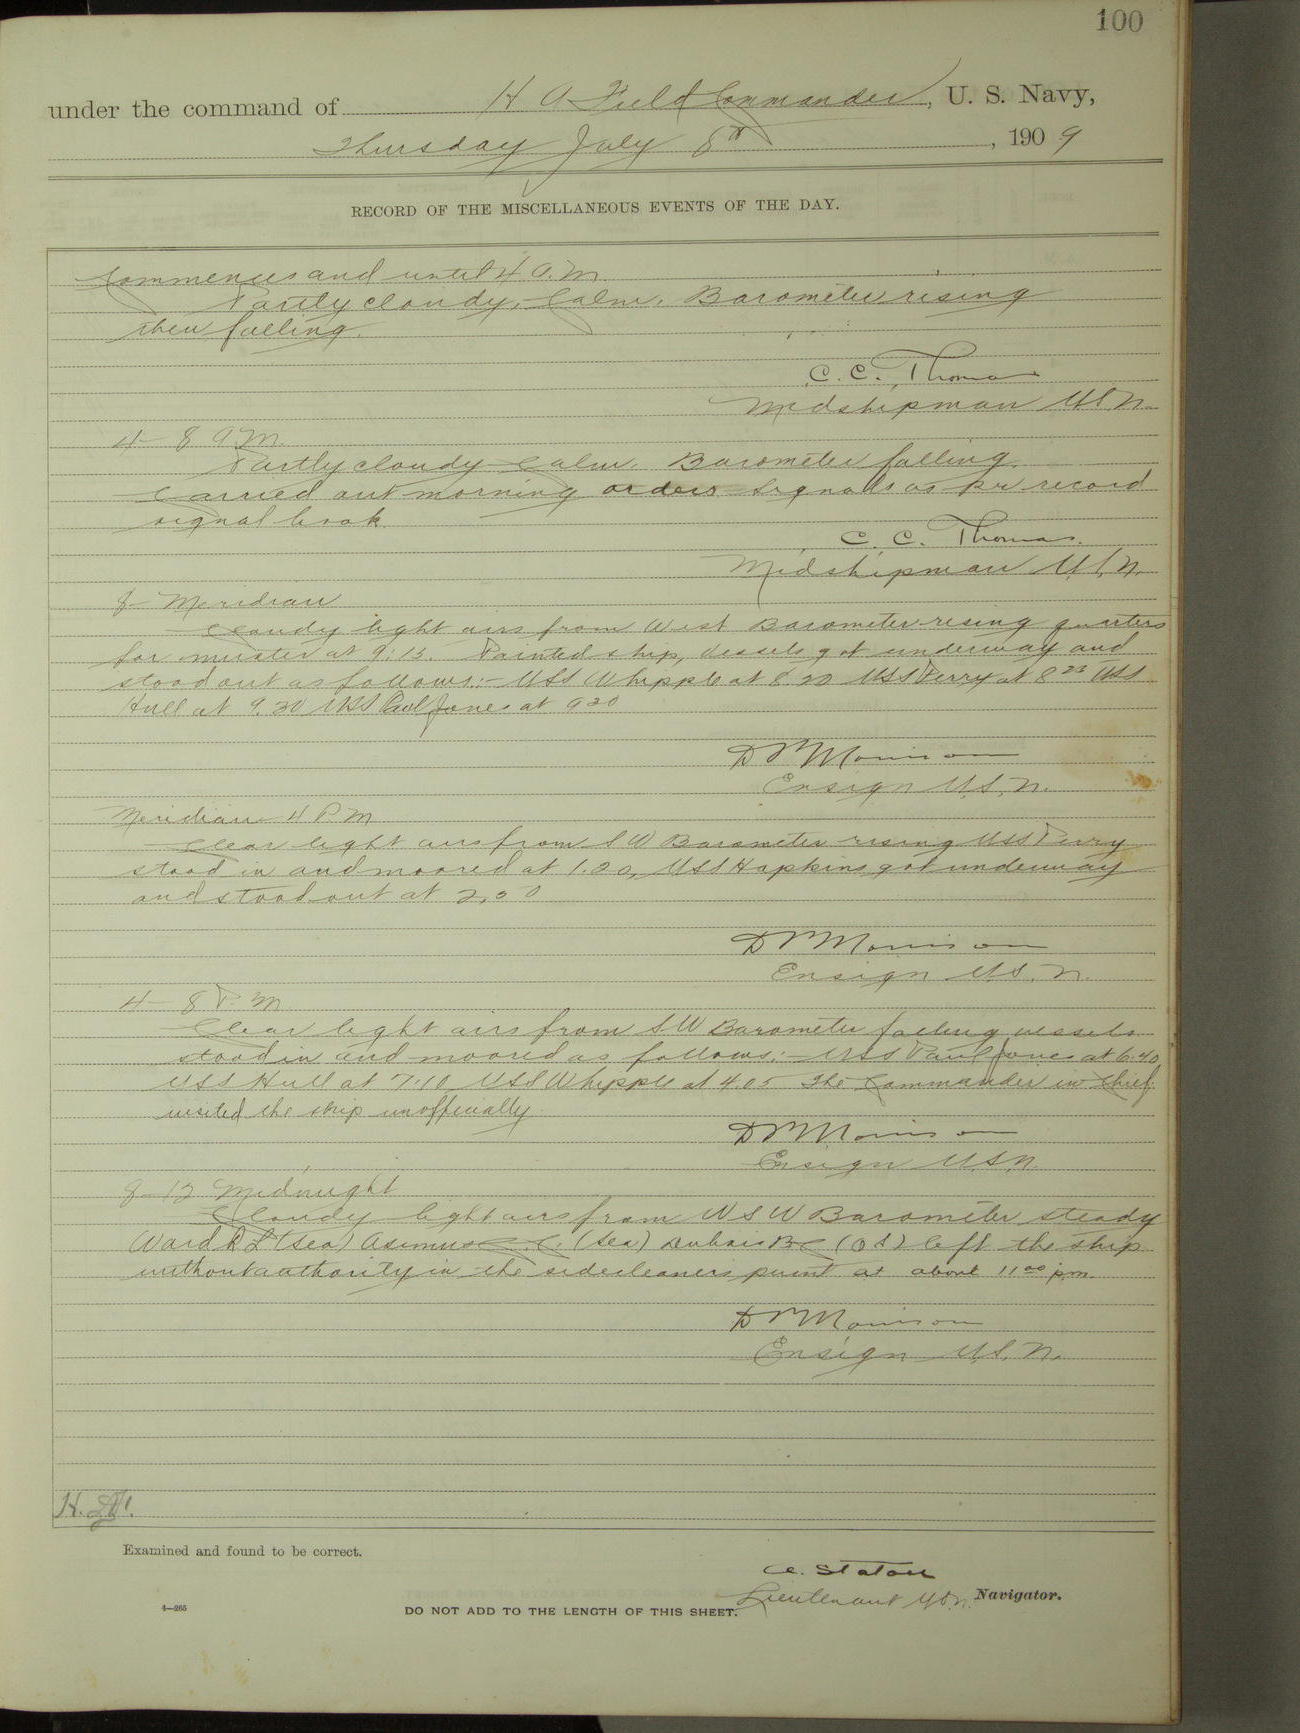 100
under the command of H A Field Commander, U. S. Navy,
Thursday July 8th, 1909
RECORD OF THE MISCELLANEOUS EVENTS OF THE DAY.
Commences and until 4 A.M.
Partly cloudy, Calm. Barometer rising
then falling.
C. C. Thomas
Midshipman USN.
4 - 8 AM.
Partly cloudy Calm. Barometer falling.
Carried out morning orders Signals as per record
signal book.
C. C. Thomas.
Midshipman U.S.N.
8 - Meridian
Cloudy light airs from West Barometer rising quarters
for muster at 9:15. Painted ship, Vessels got underway and
stood out as follows:- USS Whipple at 8 20 USS Perry at 8 25 USS
Hull at 9.30 USS Paul Jones at 9 20
Morrison
Ensign U.S.N.
Meridian - 4 PM
Clear light airs from SW Barometer rising USS Perry
stood in and moored at 1.20, USS Hopkins got underway
and stood out at 2,00
Morrison
Ensign U.S.N.
4 - 8 P.M
Clear light airs from SW Barometer falling vessels
stood in and moored as follows:- USS Paul Jones at 6:40
USS Hull at 7.10 USS Whipple at 4.05 The Commander in Chief
visited the ship unofficially.
Morrison
Ensign U.S.N.
8 - 12 Midnight
Cloudy light airs from WSW Barometer steady
Ward (Sea) (Sea) Dubois (OS) left the ship
without authority in the sidecleaners punt at about 11 00 pm.
Morrison
Ensign U.S.N.
Examined and found to be correct.
Staton
Lieutenant USN. Navigator.
4—265
DO NOT ADD TO THE LENGTH OF THIS SHEET.